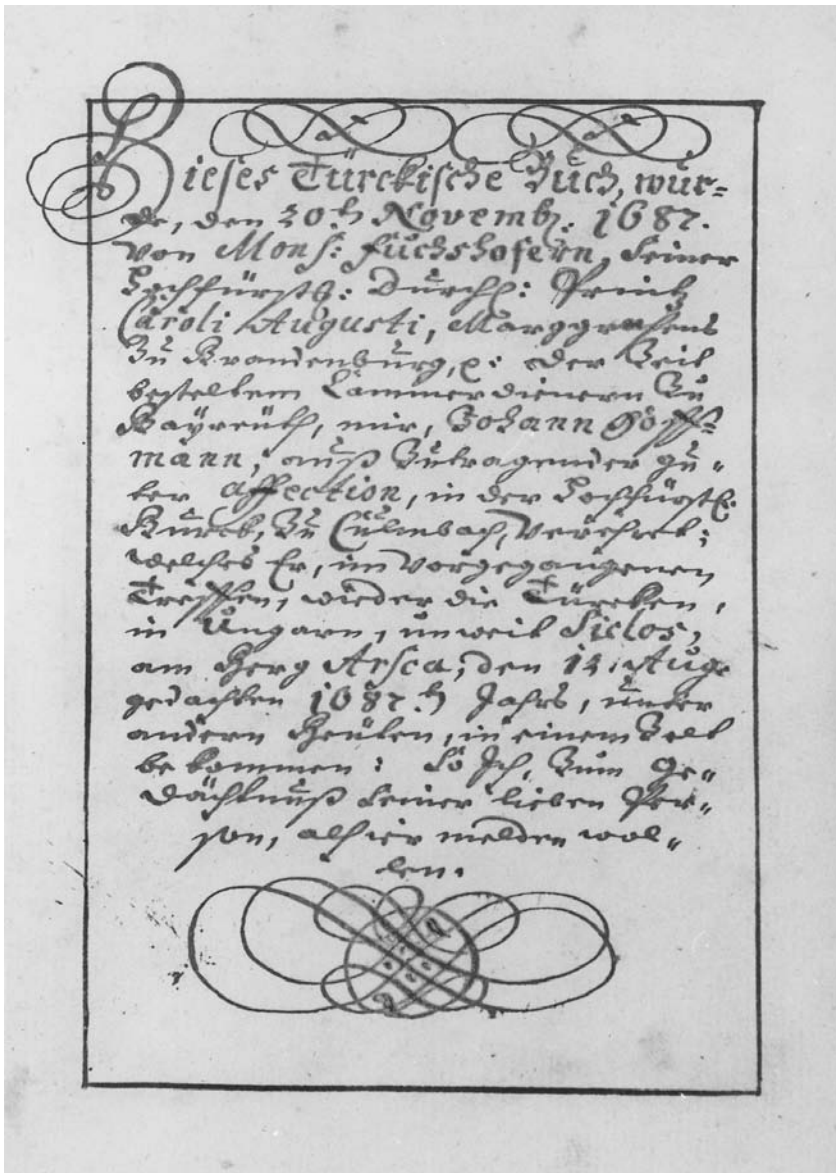 Dieses Türckische Buch, wur=
de, den 20.ten Novemb: 1687.
von Mons: Fuchshofern, Seiner
Hochfürstl: Durchl: Printz
Caroli Augusti, Marggrafens
Zu Brandenburg, p: der Zeit
bestelltem Cammerdienern Zu
Bayreuth, mir, Johann Hoff=
mann, auß Zutragender gu=
ter affection, in der Hochfürstl:
Burck, Zu Culmbach, verehret;
welches Er, im vorgegangenen
Treffen, wieder die Türcken,
in Ungarn, unweit Siclos,
am Berg Arsca, den 12. Aug:
gedachten 1687.ten Jahrs, unter
andern Beuten, in einem Zelt
bekommen: So Ich, Zum Ge=
dächtnuß Seiner lieben Per=
son, alhier melden wol=
len.